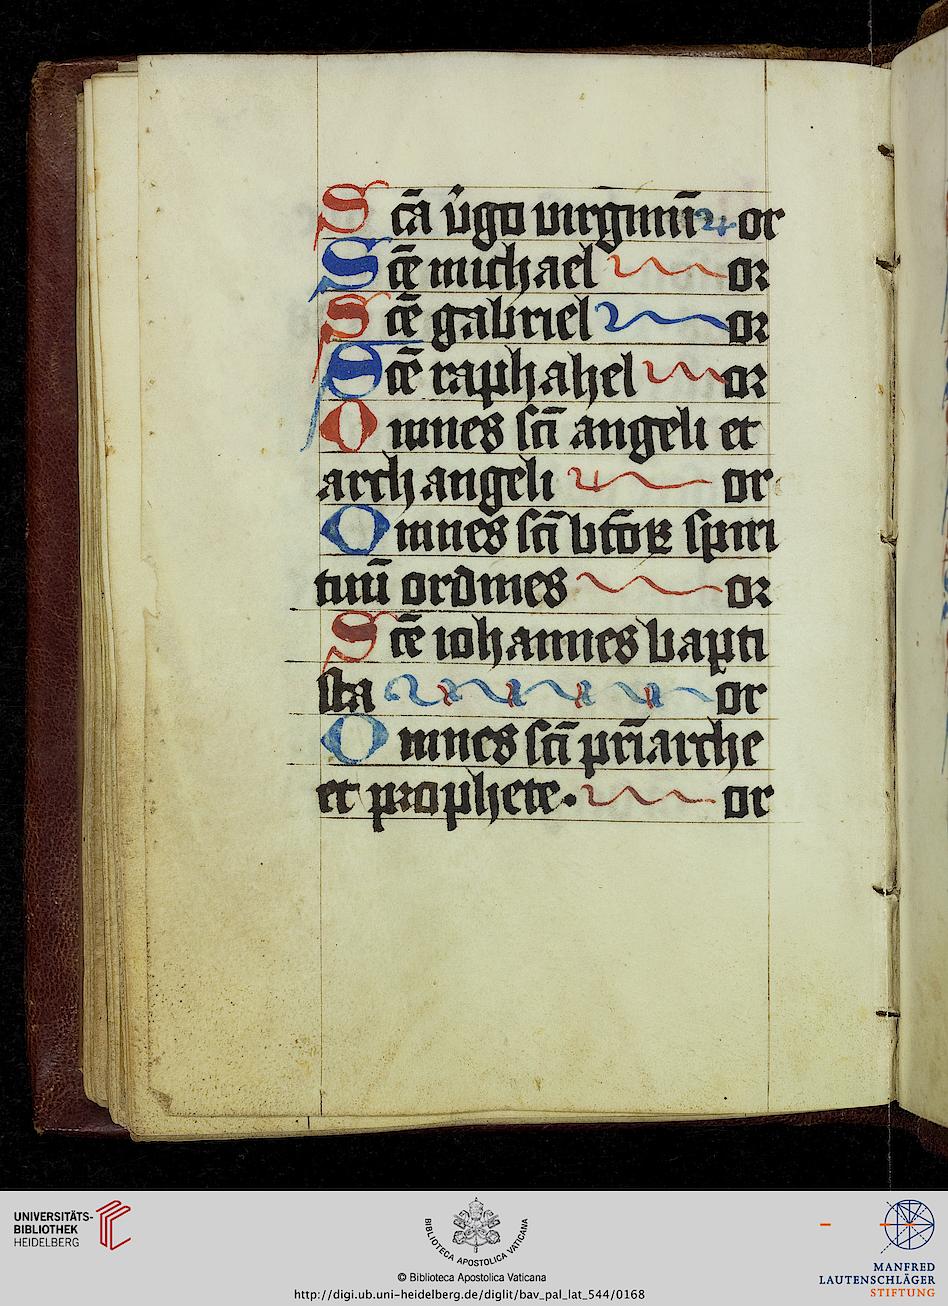 Sc̄a v̓go virginū or
Sc̄e michael or
Sc̄e gabriel or
Sc̄e raphahel or
Omnes sc̄i angeli et
archangeli or
Omnes sc̄i b̄toꝝ spiri
tuū ordines or
Sc̄e iohannes bapti
sta or
Omnes sc̄i pr̄iarche
et prophete. or
UNIVERSITÄTS-
BIBLIOTHEK
HEIDELBERG
BIBLIOTECA APOSTOLICA VATICANA
© Biblioteca Apostolica Vaticana
http://digi.ub.uni-heidelberg.de/diglit/bav_pal_lat_544/0168
MANFRED
LAUTENSCHLÄGER
STIFTUNG